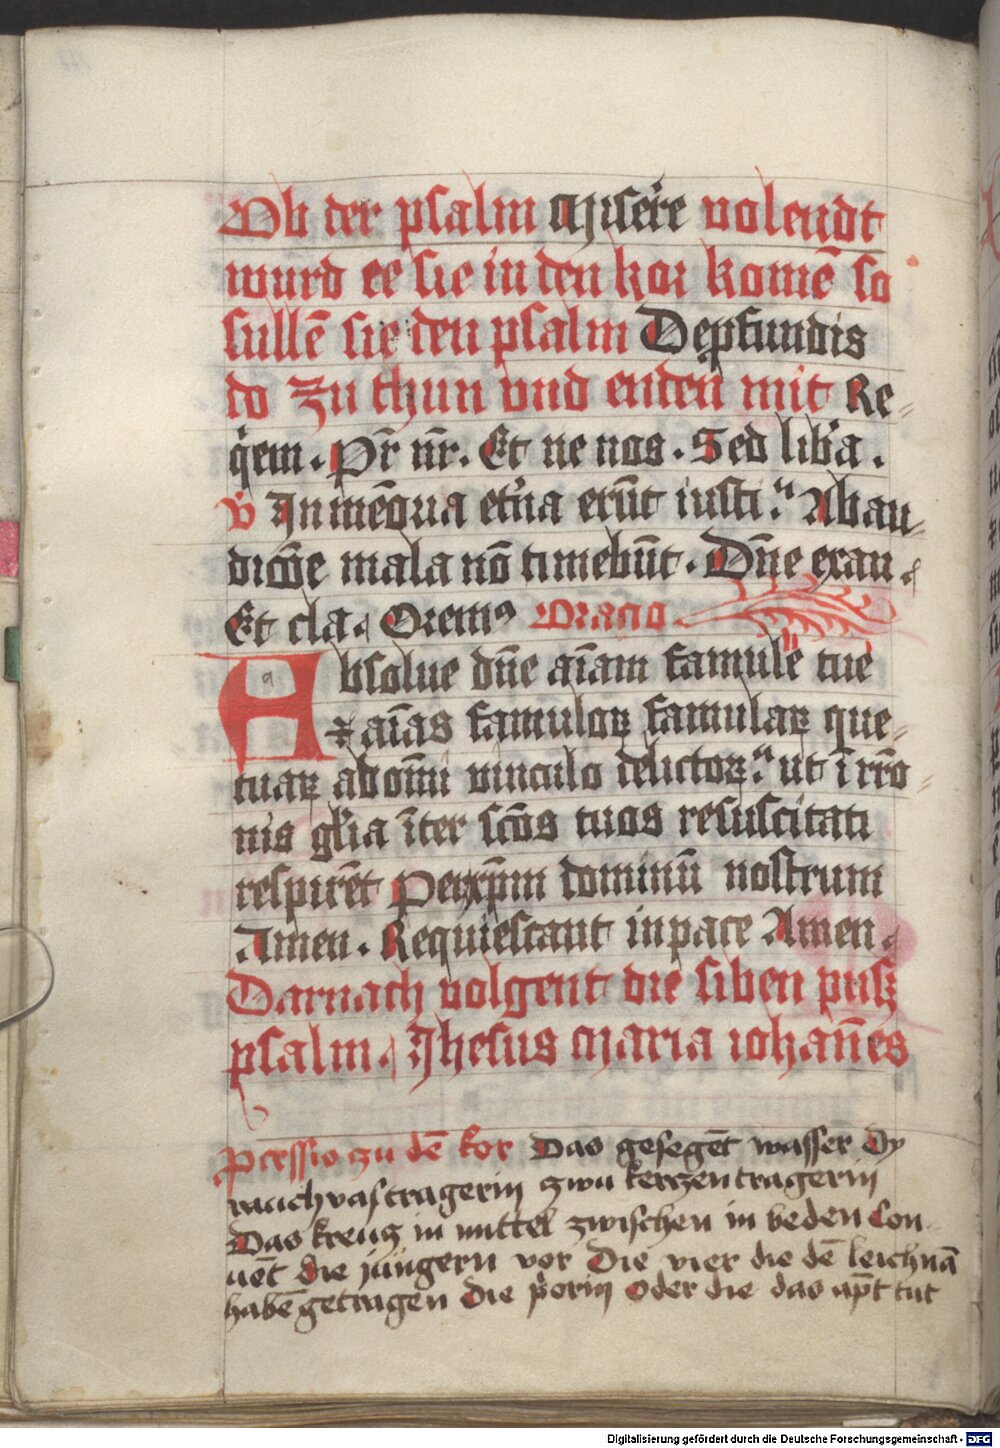 Ob der psalm Misere̅ volendt
wurd ee sie in den kor kome̅ so
sulle̅ sie den psalm Depfundis
do zu thun vnd enden mit Re-
q̇em. Pr̅ nr̅. Et ne nos. Sed lib̕a.
v̕ In me̅oria et̕na eru̅t iusti. Ab au-
dic̅o̅e mala no̅ timebu̅t. Dn̅e exau
Et cla. Oremꝰ Oracio
Absolue dn̅e ai̅am famule tue
⁊ ai̅as famuloꝝ famulaꝝ que-
tuaꝝ ab om̅i vinculo delictoꝝ. ut i̅ rr̅o-
nis gl̕ia i̅ter sc̅o̅s tuos resuscitati
respire̅t Per xp̅m dominu̅ nostrum
Amen. Requiescant in pace Amen.
Darnach volgent die siben pusz
psalm. Jhesus Maria iohan̅es
Pcessio zu de̅ kor Das gesege̅t wasser Dy
rauchvastragerin zwu kerzentragerin
Das kreuz in mittel zwischen in beden Con-
ue̅t die jungern vor Die vier die de̅ leichna̅
habe̅ getragen Die p̕orin Oder die das ap̅t tut
Digitalisierung gefördert durch die Deutsche Forschungsgemeinschaft - DFG